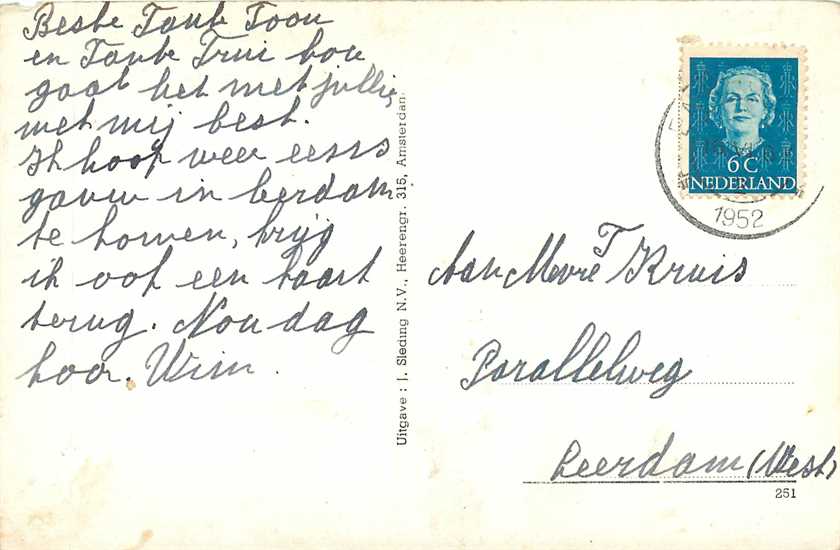 Beste Tante Toon
en Tante Trui hoe
gaat het met jullie
met mij best.
Ik hoop weer eens
gauw in Leerdam
te komen, krijg
ik ook een kaart
terug. Nou dag
hoor. Wim.
Uitgave : J. Sleding N.V., Heerengr. 315, Amsterdam.
6C
NEDERLAND
1952
Aan Mevr T Kruis
Parallelweg
Leerdam (West)
251